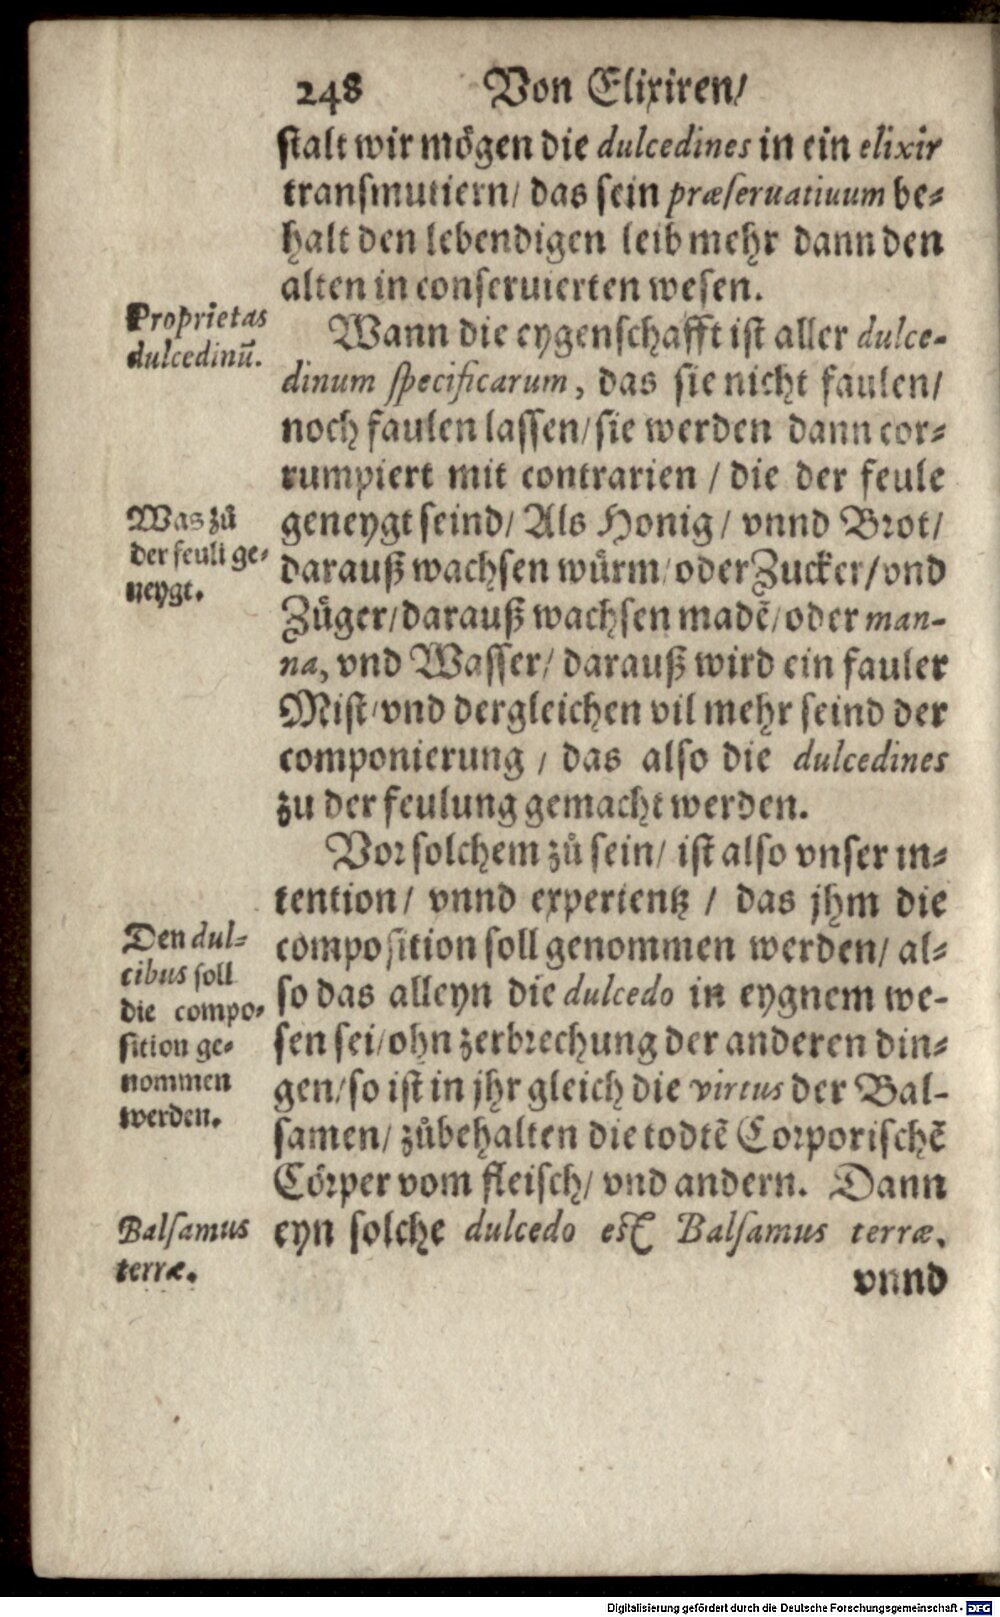 248 Von Elixiren/
stalt wir mögen die dulcedines in ein elixir
transmutiern/ das sein præseruatiuum be-
halt den lebendigen leib mehr dann den
alten in conseruierten wesen.
Proprietas
dulcedinū.
Wann die eygenschafft ist aller dulce-
dinum specificarum, das sie nicht faulen/
noch faulen lassen/ sie werden dann cor-
rumpiert mit contrarien / die der feule
Was zů
der feuli ge-
neygt.
geneygt seind/ Als Honig/ vnnd Brot/
darauß wachsen würm/ oder Zucker/ vnd
Züger/ darauß wachsen madē/ oder man-
na, vnd Wasser/ darauß wird ein fauler
Mist/ vnd dergleichen vil mehr seind der
componierung / das also die dulcedines
zu der feulung gemacht werden.
Vor solchem zů sein/ ist also vnser in-
tention/ vnnd experientz / das jhm die
Den dul-
cibus soll
die compo-
sition ge-
nommen
werden.
composition soll genommen werden/ al-
so das alleyn die dulcedo in eygnem we-
sen sei/ ohn zerbrechung der anderen din-
gen/ so ist in jhr gleich die virtus der Bal-
samen/ zůbehalten die todtē Corporischē
Cörper vom fleisch/ vnd andern. Dann
Balsamus
terræ.
eyn solche dulcedo est Balsamus terræ.
vnnd
Digitalisierung gefördert durch die Deutsche Forschungsgemeinschaft - DFG